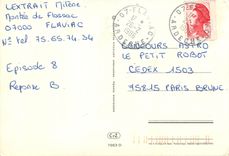 LEXTRAIT Milène
Montée de Flossac
07000 FLAVIAC
N° tel 75.65.74.34
Episode 8
Reponse B
CONCOURS ASTRO
LE PETIT ROBOT
CEDEX 1503
75815 PARIS BRUNE